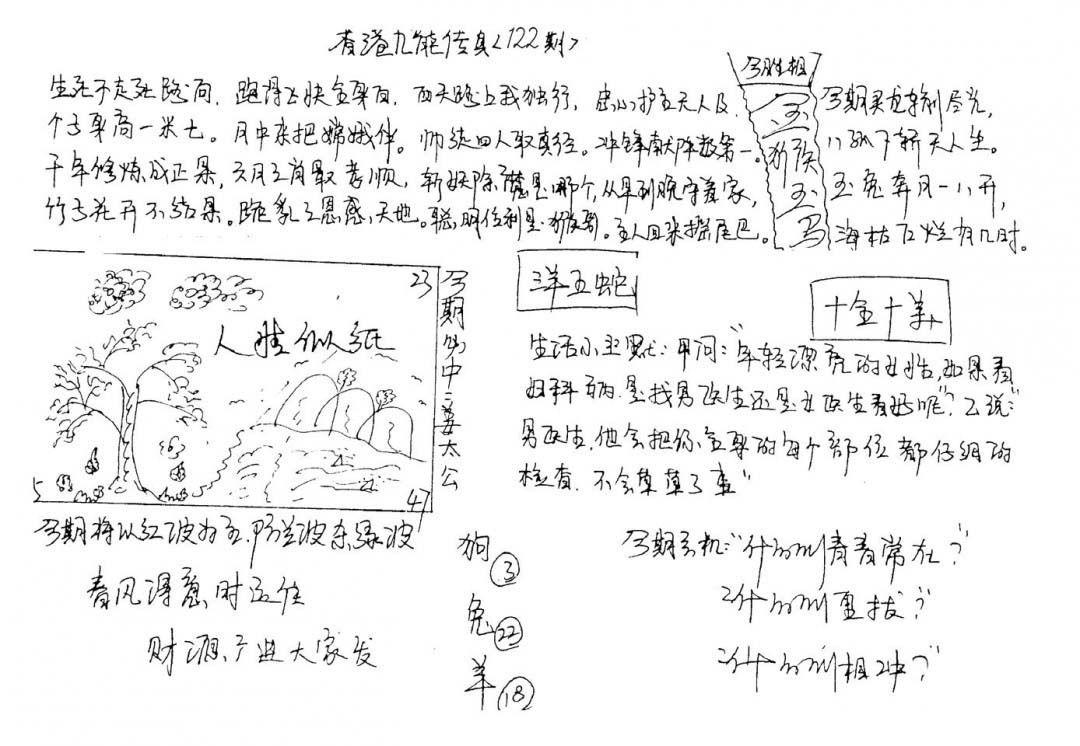 香港九能传真〈122期〉
生死不走死路同，跑得飞快全身白，西天路上我独行，忠心护主天人及，
个子身高一米七。月中来把嫦娥伴。师徒四人取真经。冲锋献阵数第一。
千年修炼成正果，六月六肖最孝顺，斩妖除魔是哪个，从早到晚守着家，
竹子花开不结果。跪乳之恩感天地。聪明伶利是。主人回来摇尾巴。
今胜相
金
猴
玉
马
今期
八
玉兔奔月一八开，
海枯石烂有几时。
23
人胜似纸
5
47
今期 中二姜太公
羊五蛇
十全十羊
生活小幽默：甲问：“年轻漂亮的女性，如果看
妇科病是找男医生还是女医生看好呢”？乙说：“
男医生，他会把你全身的每个部位都仔细的
检查，不会草草了事”
今期将以红波为主，防兰波杀绿波
春风得意时运佳
财源广进大家发
狗③
兔㉒
羊⑱
今期玄机：“什么叫青春常在？”
什么叫 拔？”
什么叫相冲？”